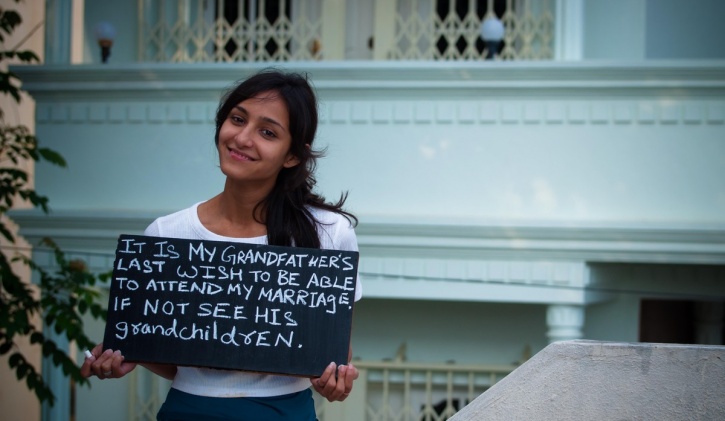 IT IS MY GRANDFATHER'S
LAST WISH TO BE ABLE
TO ATTEND MY MARRIAGE.
IF NOT SEE HIS
grandchildrEN.